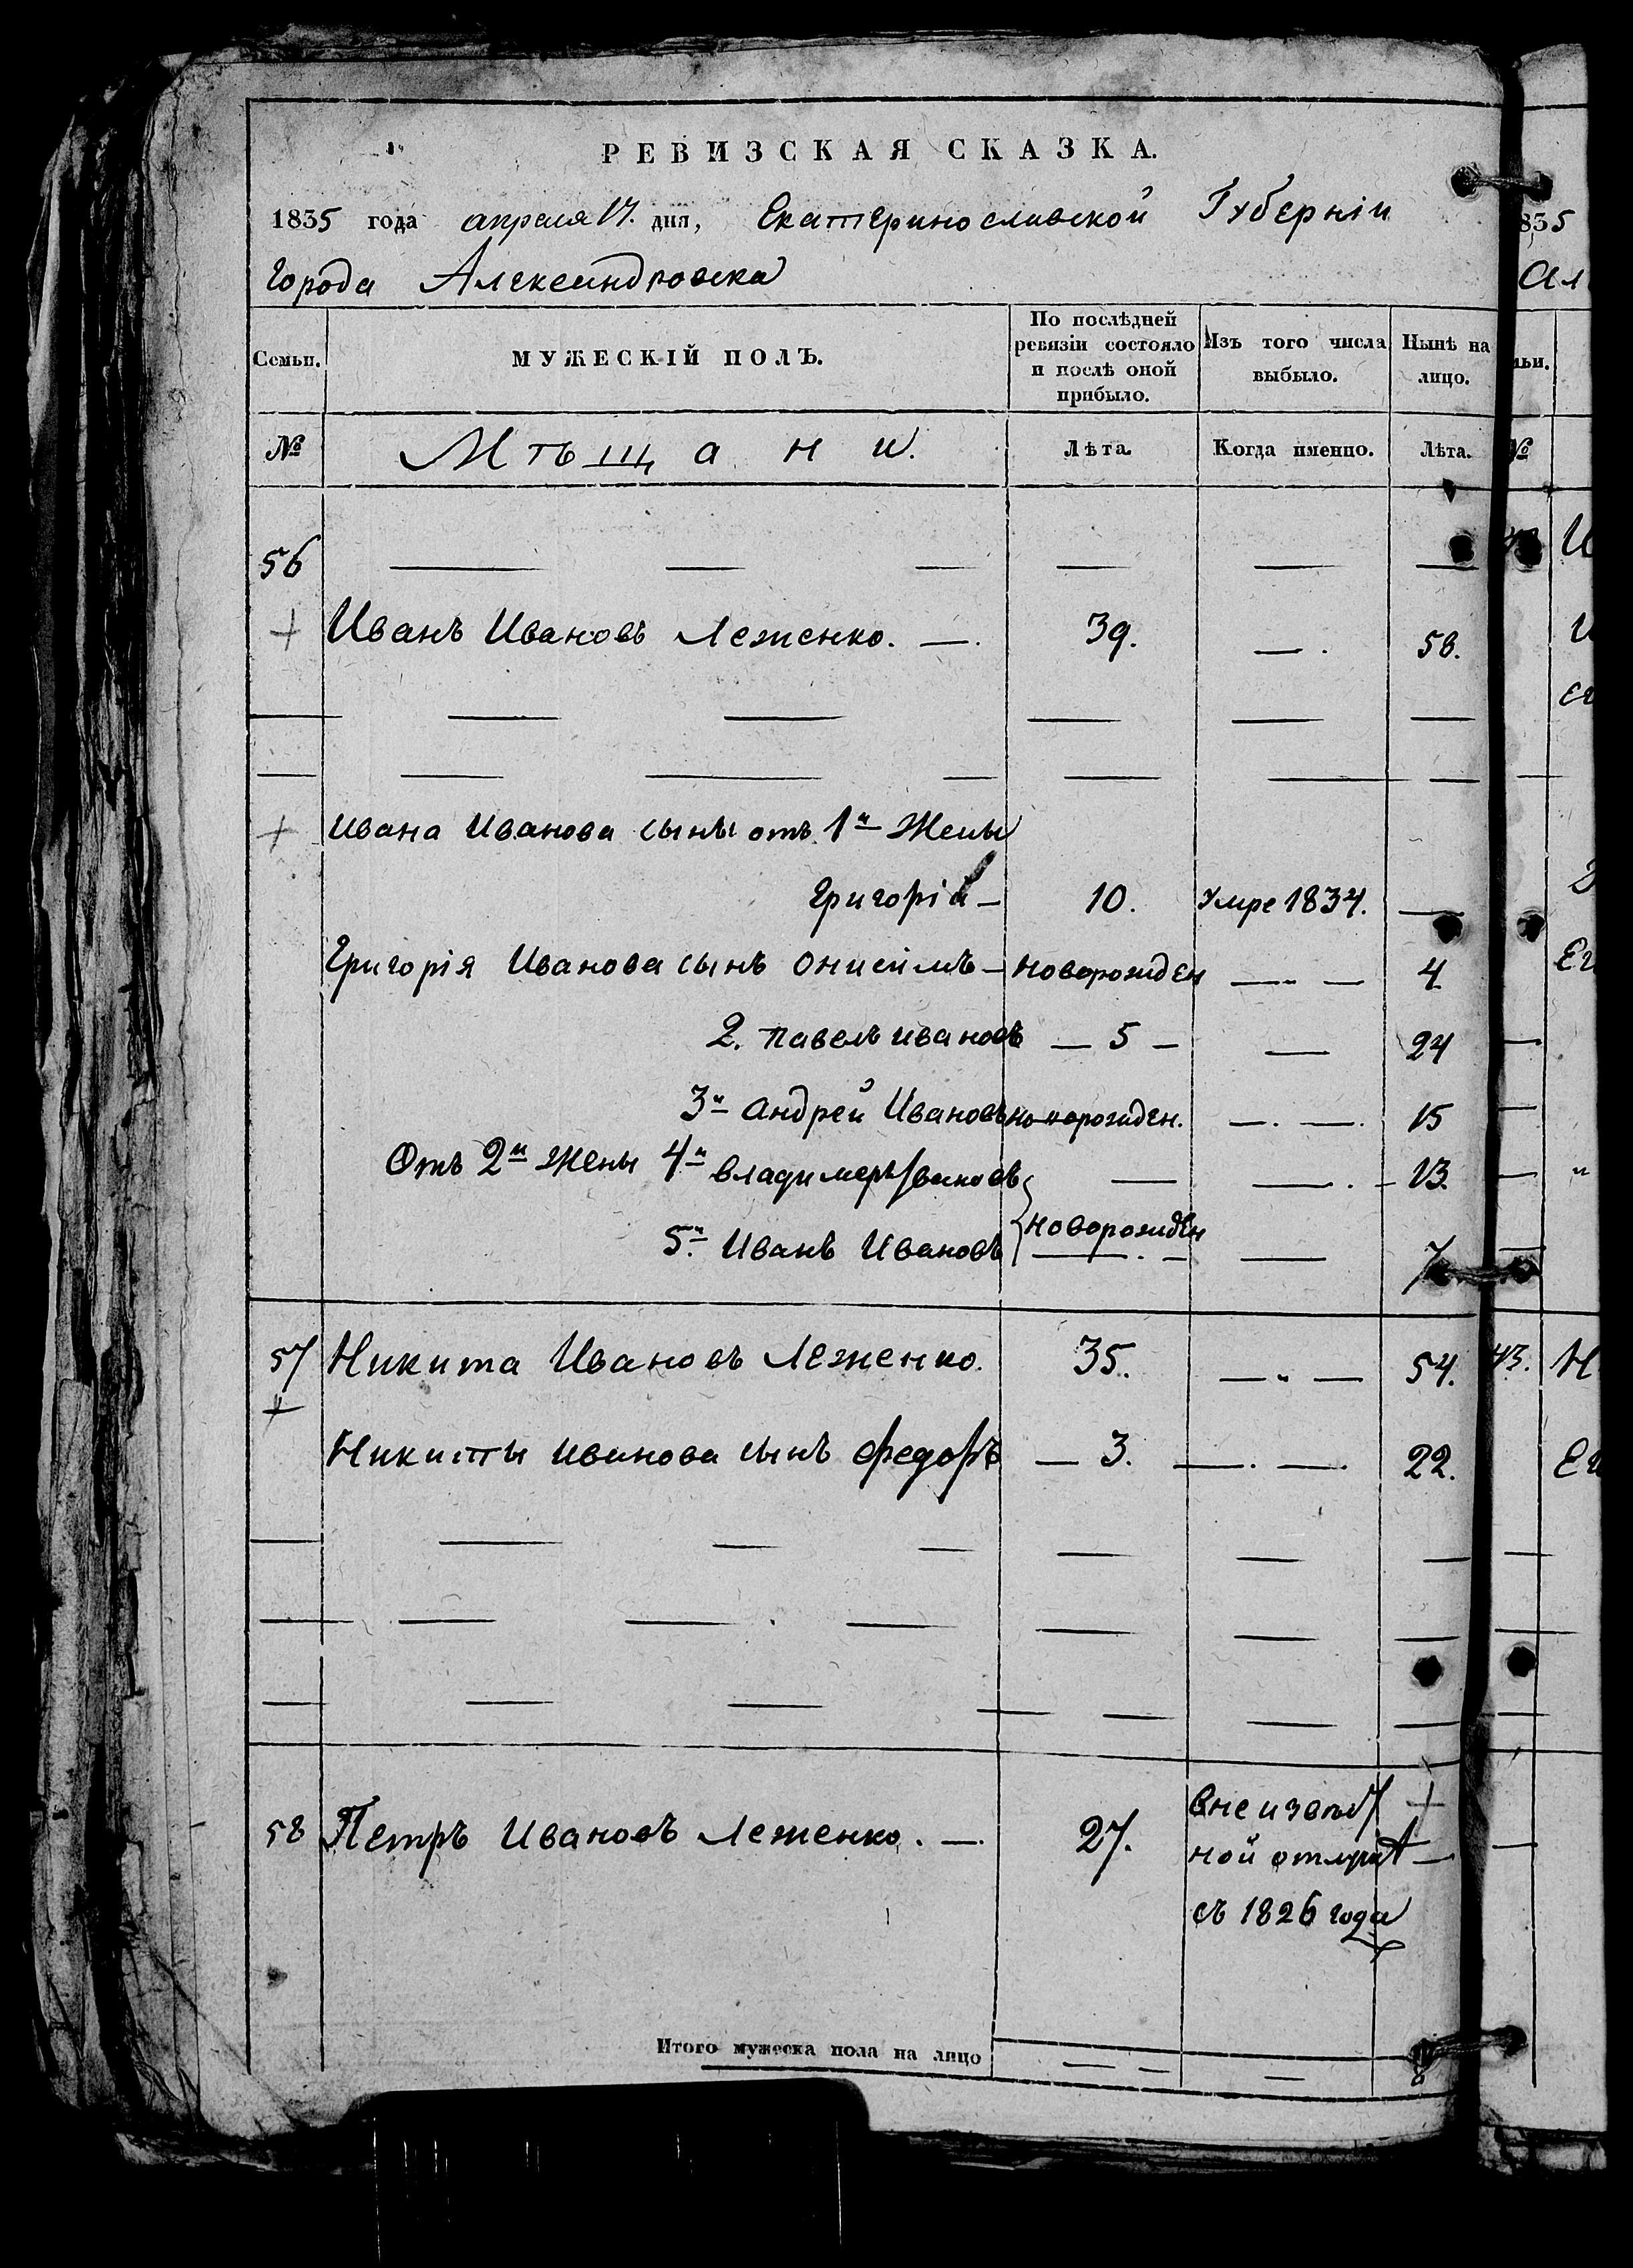 РЕВИЗСКАЯ СКАЗКА.
1835 года апреля 17. дня, Екатеринославской Губерніи
города Александровска
Семьи. МУЖЕСКІЙ ПОЛЪ. По послѣдней ревизіи состояло и послѣ оной прибыло. Изъ того числа выбыло. Нынѣ на лицо.
№ Мѣщани. Лѣта. Когда именно. Лѣта. №
56
Иванъ Ивановъ Леженко. 39. 58.
Ивана Иванова сыны отъ 1й Жены
Григорій 10. Умре 1834.
Григорія Иванова сынъ Онисимъ новорожден 4
2. павелъ ивановъ 5 24
3й андрей Ивановъ новорожден. 15
Отъ 2й Жены 4й владимеръ Ивановъ 13.
5й Иванъ Ивановъ новорожден 7
57 Никита Ивановъ Леженко. 35. 54. 43.
Никиты иванова сынъ Федоръ 3. 22.
58 Петръ Ивановъ Леженко. 27. внеизвѣст
ной отлучк
съ 1826 года
Итого мужеска пола на лицо 8